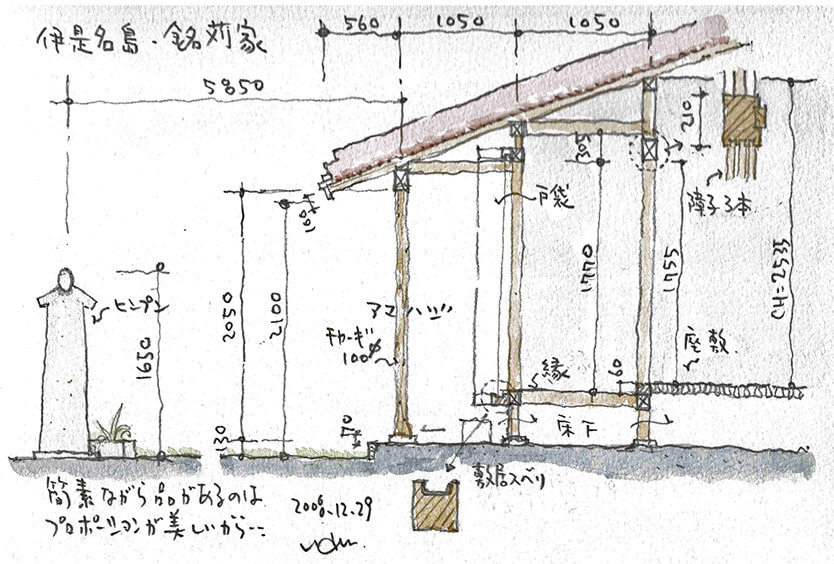 伊是名島・銘苅家
560
1050
1050
5850
210
305
100
戸袋
障子3本
ヒンプン
1650
2050
2100
アマハジ
チャーギ
100φ
1770
1755
CH=2535
座敷
縁
60
130
床下
敷居スベリ
簡素ながら品があるのは
プロポーションが美しいから‥
2006.12.29